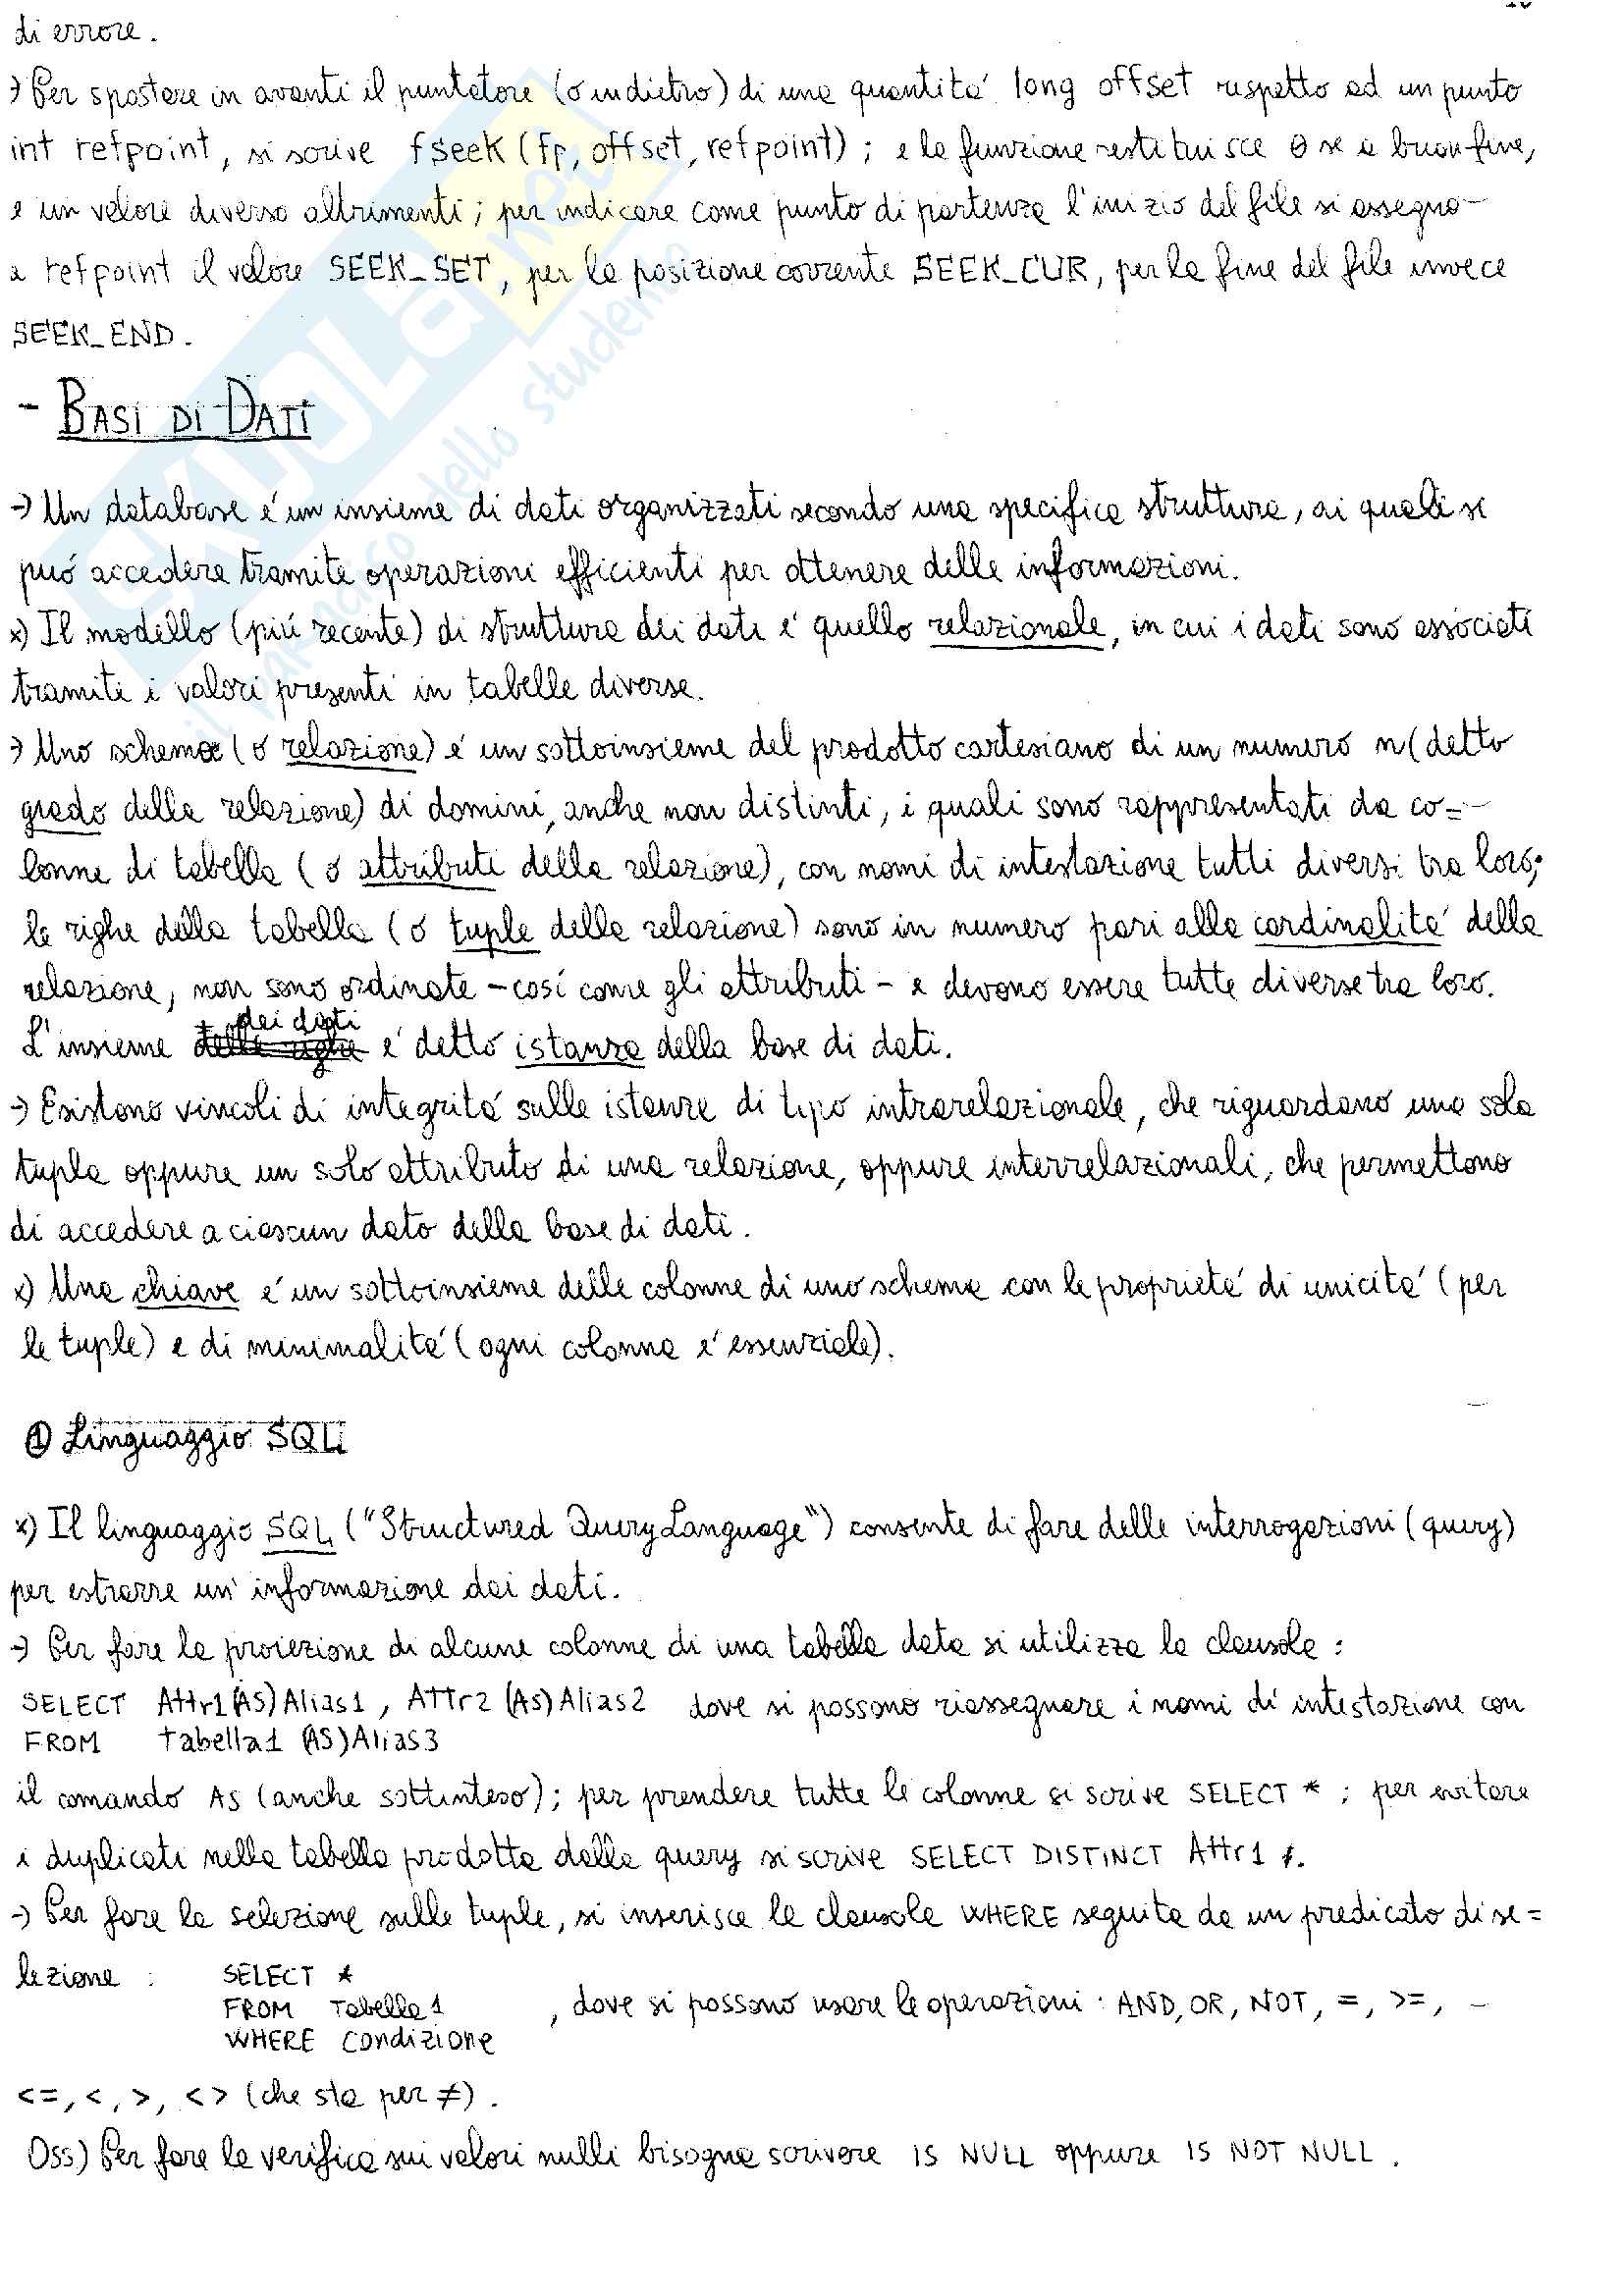 di errore.
→ Per spostare in avanti il puntatore (o indietro) di una quantità long offset rispetto ad un punto
int refpoint, si scrive fseek (fp, offset, refpoint) ; e la funzione restituisce 0 se a buon fine,
e un valore diverso altrimenti ; per indicare come punto di partenza l'inizio del file si assegna
a refpoint il valore SEEK_SET, per la posizione corrente SEEK_CUR, per la fine del file invece
SEEK_END.
- BASI DI DATI
→ Un database é un insieme di dati organizzati secondo una specifica struttura, ai quali si
può accedere tramite operazioni efficienti per ottenere delle informazioni.
x) Il modello (piú recente) di struttura dei dati é quello relazionale, in cui i dati sono associati
tramite i valori presenti in tabelle diverse.
→ Uno schema (o relazione) é un sottoinsieme del prodotto cartesiano di un numero n (detto
grado della relazione) di domini, anche non distinti, i quali sono rappresentati da co=
lonne di tabella (o attributi della relazione), con nomi di intestazione tutti diversi tra loro;
le righe della tabella (o tuple della relazione) sono in numero pari alla cardinalitá della
relazione, non sono ordinate - cosí come gli attributi - e devono essere tutte diverse tra loro.
L'insieme dei dati é detto istanza della base di dati.
→ Esistono vincoli di integritá sulle istanze di tipo intrarelazionale, che riguardano una sola
tupla oppure un solo attributo di una relazione, oppure interrelazionali, che permettono
di accedere a ciascun dato della base di dati.
x) Una chiave é un sottoinsieme delle colonne di uno schema con le proprietá di unicitá (per
le tuple) e di minimalitá (ogni colonna é essenziale).
① Linguaggio SQL
x) Il linguaggio SQL ("Structured Query Language") consente di fare delle interrogazioni (query)
per estrarre un' informazione dai dati.
→ Per fare la proiezione di alcune colonne di una tabella data si utilizza la clausola :
SELECT Attr1 (AS) Alias1 , Attr2 (AS) Alias2 dove si possono riassegnare i nomi di intestazione con
FROM Tabella1 (AS) Alias3
il comando AS (anche sottinteso) ; per prendere tutte le colonne si scrive SELECT * ; per evitare
i duplicati nella tabella prodotta dalla query si scrive SELECT DISTINCT Attr1 .
→ Per fare la selezione sulle tuple, si inserisce la clausola WHERE seguita da un predicato di se=
lezione : SELECT *
FROM Tabella1 , dove si possono usare le operazioni : AND, OR, NOT, =, >=,
WHERE Condizione
<=, <, >, <> (che sta per ≠) .
Oss) Per fare la verifica sui valori nulli bisogna scrivere IS NULL oppure IS NOT NULL .